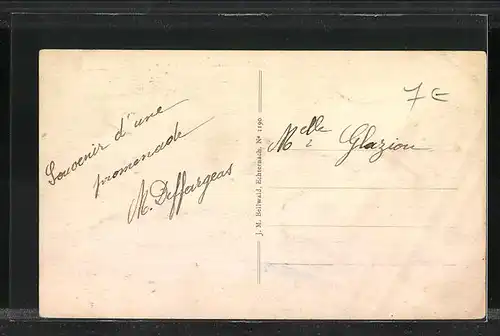 Souvenir d'une
promenade
M. Deffargeas
J. M. Bellwald, Echternach, Nº 1190
7€
Melle Glazion